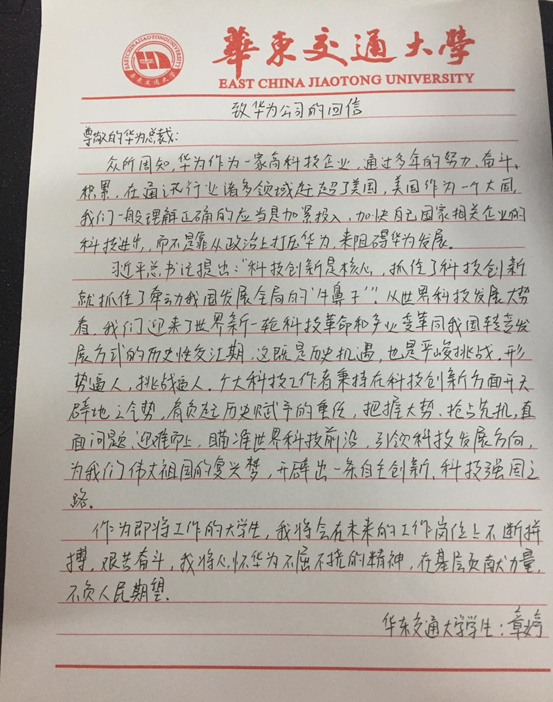 華東交通大學
EAST CHINA JIAOTONG UNIVERSITY
致华为公司的回信
尊敬的华为总裁:
众所周知,华为作为一家高科技企业,通过多年的努力、奋斗、
积累,在通讯行业诸多领域赶超了美国,美国作为一个大国,
我们一般理解正确的应当是加紧投入、加快自己国家相关企业的
科技进步,而不是靠从政治上打压华为,来阻碍华为发展。
习近平总书记提出:“科技创新是核心,抓住了科技创新
就抓住了牵动我国发展全局的‘牛鼻子’”。从世界科技发展大势
看,我们迎来了世界新一轮科技革命和产业变革同我国转变发
展方式的历史性交汇期,这既是历史机遇,也是严峻挑战,形
势逼人,挑战逼人。广大科技工作者秉持在科技创新方面开天
辟地之气势,肩负历史赋予的重任,把握大势、抢占先机,直
面问题、迎难而上,瞄准世界科技前沿,引领科技发展方向,
为我们伟大祖国的复兴梦,开辟出一条自主创新、科技强国之
路。
作为即将工作的大学生,我将会在未来的工作岗位上不断拼
搏,艰苦奋斗,我将心怀华为不屈不挠的精神,在基层贡献力量,
不负人民期望。
华东交通大学学生:章婷